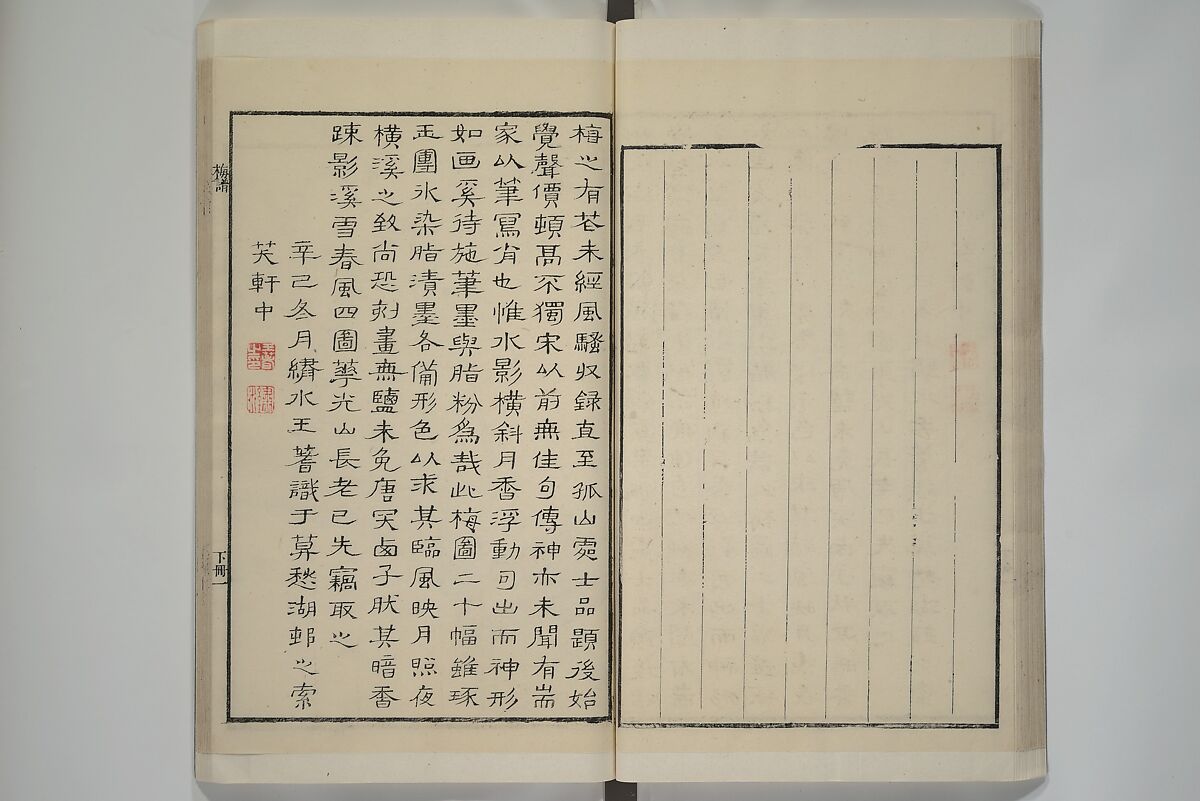 梅之有花未經風騷収録直至孤山處士品題後始
覺聲價頓高不獨宋以前無佳句傳神亦未聞有耑
家以筆寫肖也惟水影橫斜月香浮動句出而神形
如画奚待施筆墨與脂粉為哉此梅圖二十幅雖琢
玉團冰染脂漬墨各備形色以求其臨風映月照夜
橫溪之致尚恐刻畫無鹽未免唐突西子肰其暗香
疎影溪雪春風四圖華光山長老已先竊取之
辛巳冬月繡水王蓍識于莫愁湖邨之索
芙軒中
梅譜
下冊一